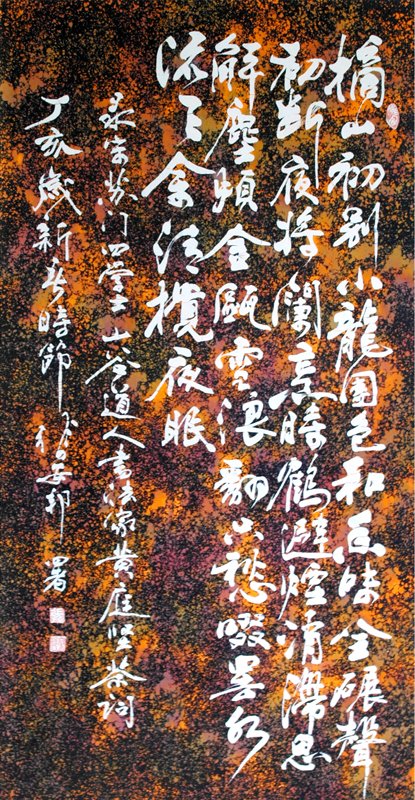 摘山初制小龍團色和香味全碾聲
初斷夜將闌烹時鶴避煙消滯思
解塵煩金甌雪浪翻只愁啜罷水
流天余清攪夜眠
录宋苏门四學士山谷道人書法家黄庭堅茶詞
丁亥歲新春時節安邦署